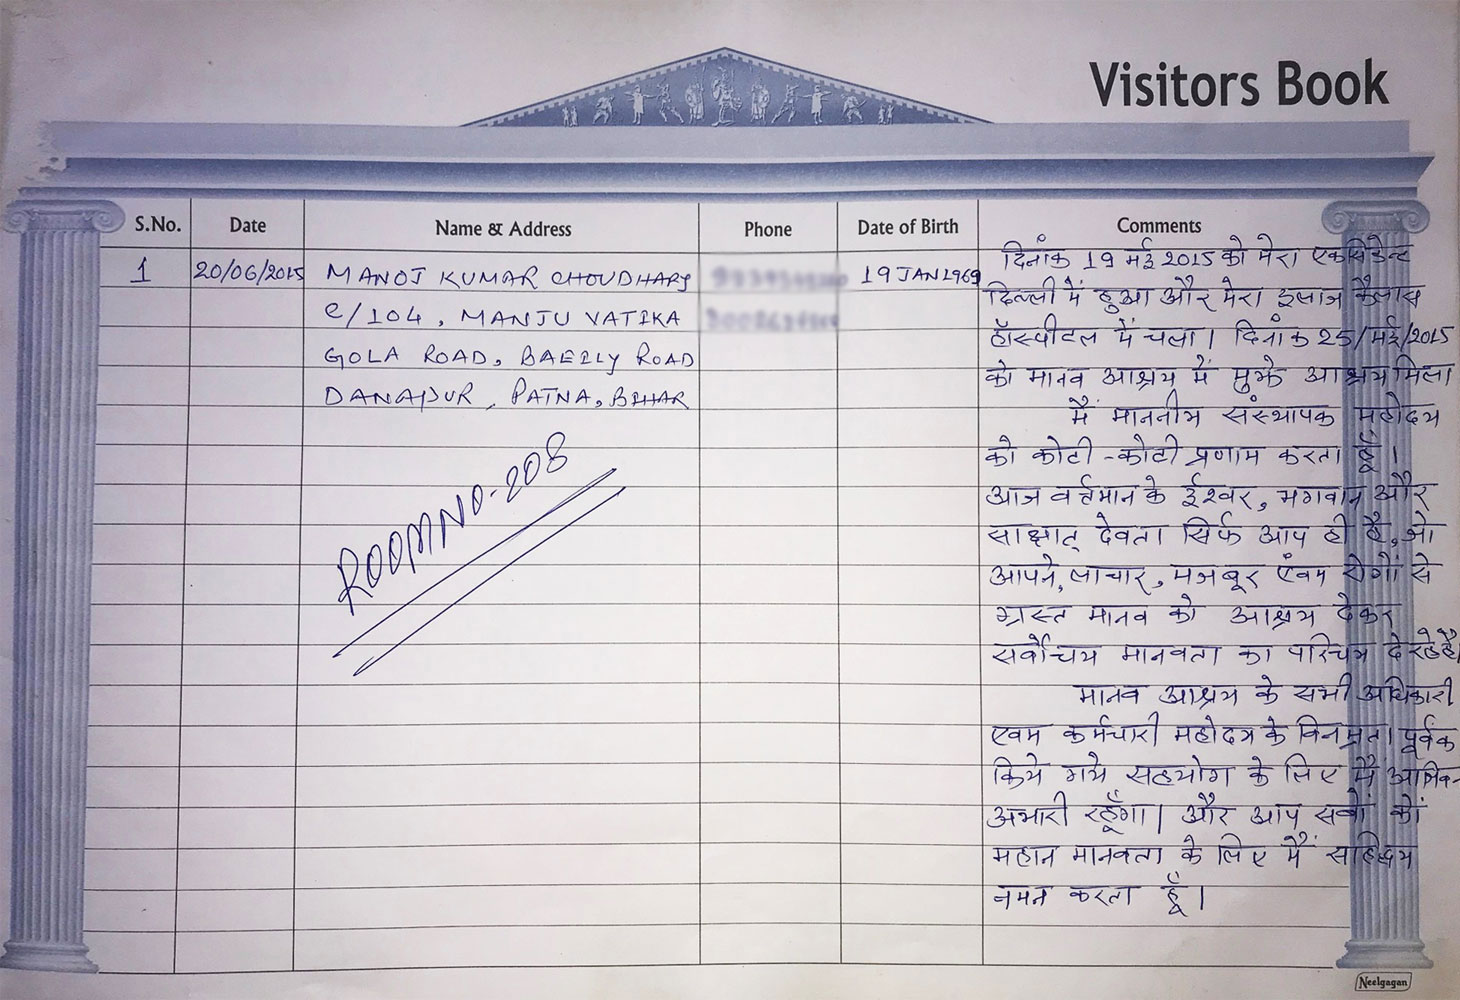 Visitors Book
S.No. Date Name & Address Phone Date of Birth Comments
1 20/06/2015 MANOJ KUMAR CHOUDHARY 19 JAN 1969
C/104, MANJU VATIKA
GOLA ROAD, BAEILY ROAD
DANAPUR, PATNA, BIHAR
ROOM NO-208
दिनांक 19 मई 2015 को मेरा एकसिडेन्ट
दिल्ली में हुआ और मेरा इलाज कैलास
हॉस्पीटल में चला। दिनांक 25/मई/2015
को मानव आश्रय में मुझे आश्रय मिला
मैं माननीय संस्थापक महोदय
को कोटी-कोटी प्रणाम करता हूँ।
आज वर्तमान के ईश्वर, भगवान और
साक्षात् देवता सिर्फ आप ही है, जो
आपने, लाचार, मजबूर एंवम रोगों से
ग्रस्त मानव को आश्रय देकर
सर्वोच्चय मानवता का परिचय दे रहे है।
मानव आश्रय के सभी अधिकारी
एवम कर्मचारी महोदय के विनम्रता पूर्वक
किये गये सहयोग के लिए मैं
अभारी रहूँगा। और आप सबों को
महान मानवता के लिए मैं
नमन करता हूँ।
Neelgagan